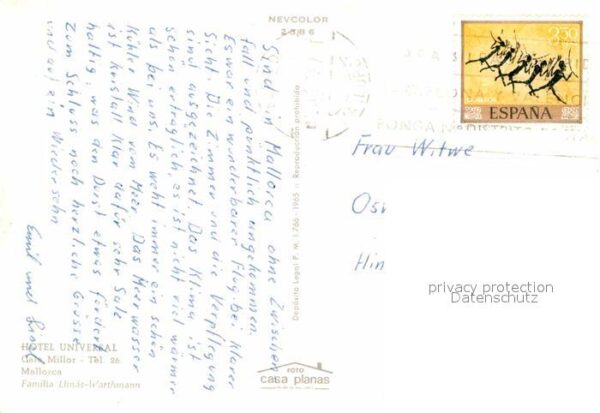 NEVCOLOR
2386
Sind in Mallorca ohne Zwischen
fall und pünktlich angekommen.
Es war ein wunderbarer Flug. bei Klarer
Sicht. Die Zimmer und die Verpflegung
sind ausgezeichnet. Das Klima ist
schön erträglich, es ist nicht viel wärmer
als bei uns. Es weht immer ein schön
Kühler Wind vom Meer. Das Meerwasser
ist kristall Klar dafür sehr Salz
haltig, was den Durst etwas fördert.
Zum Schluss noch herzliche Grüsse
und auf ein Wiedersehn
Emil und
HOTEL UNIVERSAL
Cala Millor - Tel. 26
Mallorca
Familia Llinás-Warthmann
Depósito Legal P. M. 1766 - 1965 - Reproducción prohibida
FOTO
casa planas
3,50
ESPAÑA
Frau Witwe
Os
Hin
privacy protection
Datenschutz